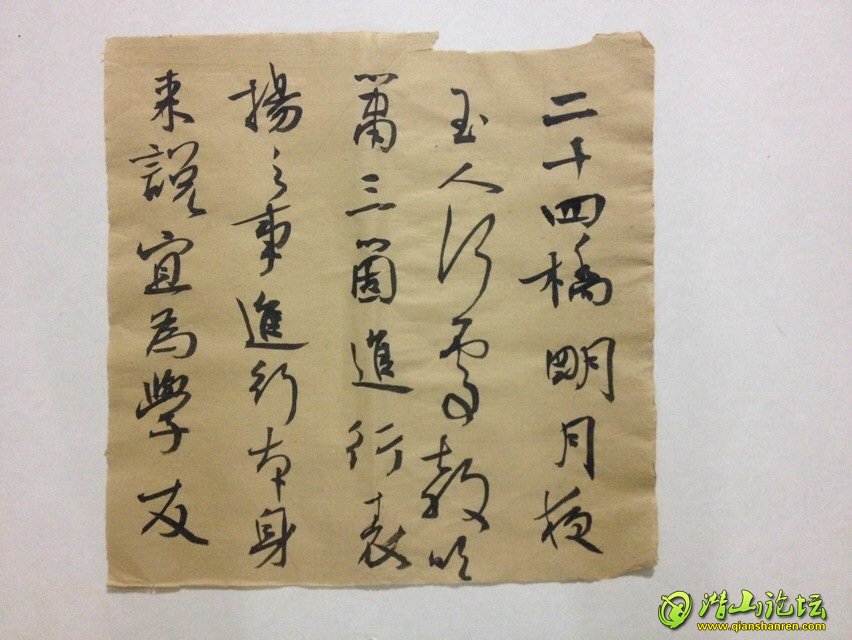 二十四橋明月夜
玉人何處教吹
簫三箇進行表
揚之事進行本身
來說宜為學友
潜山论坛
www.qianshanren.com